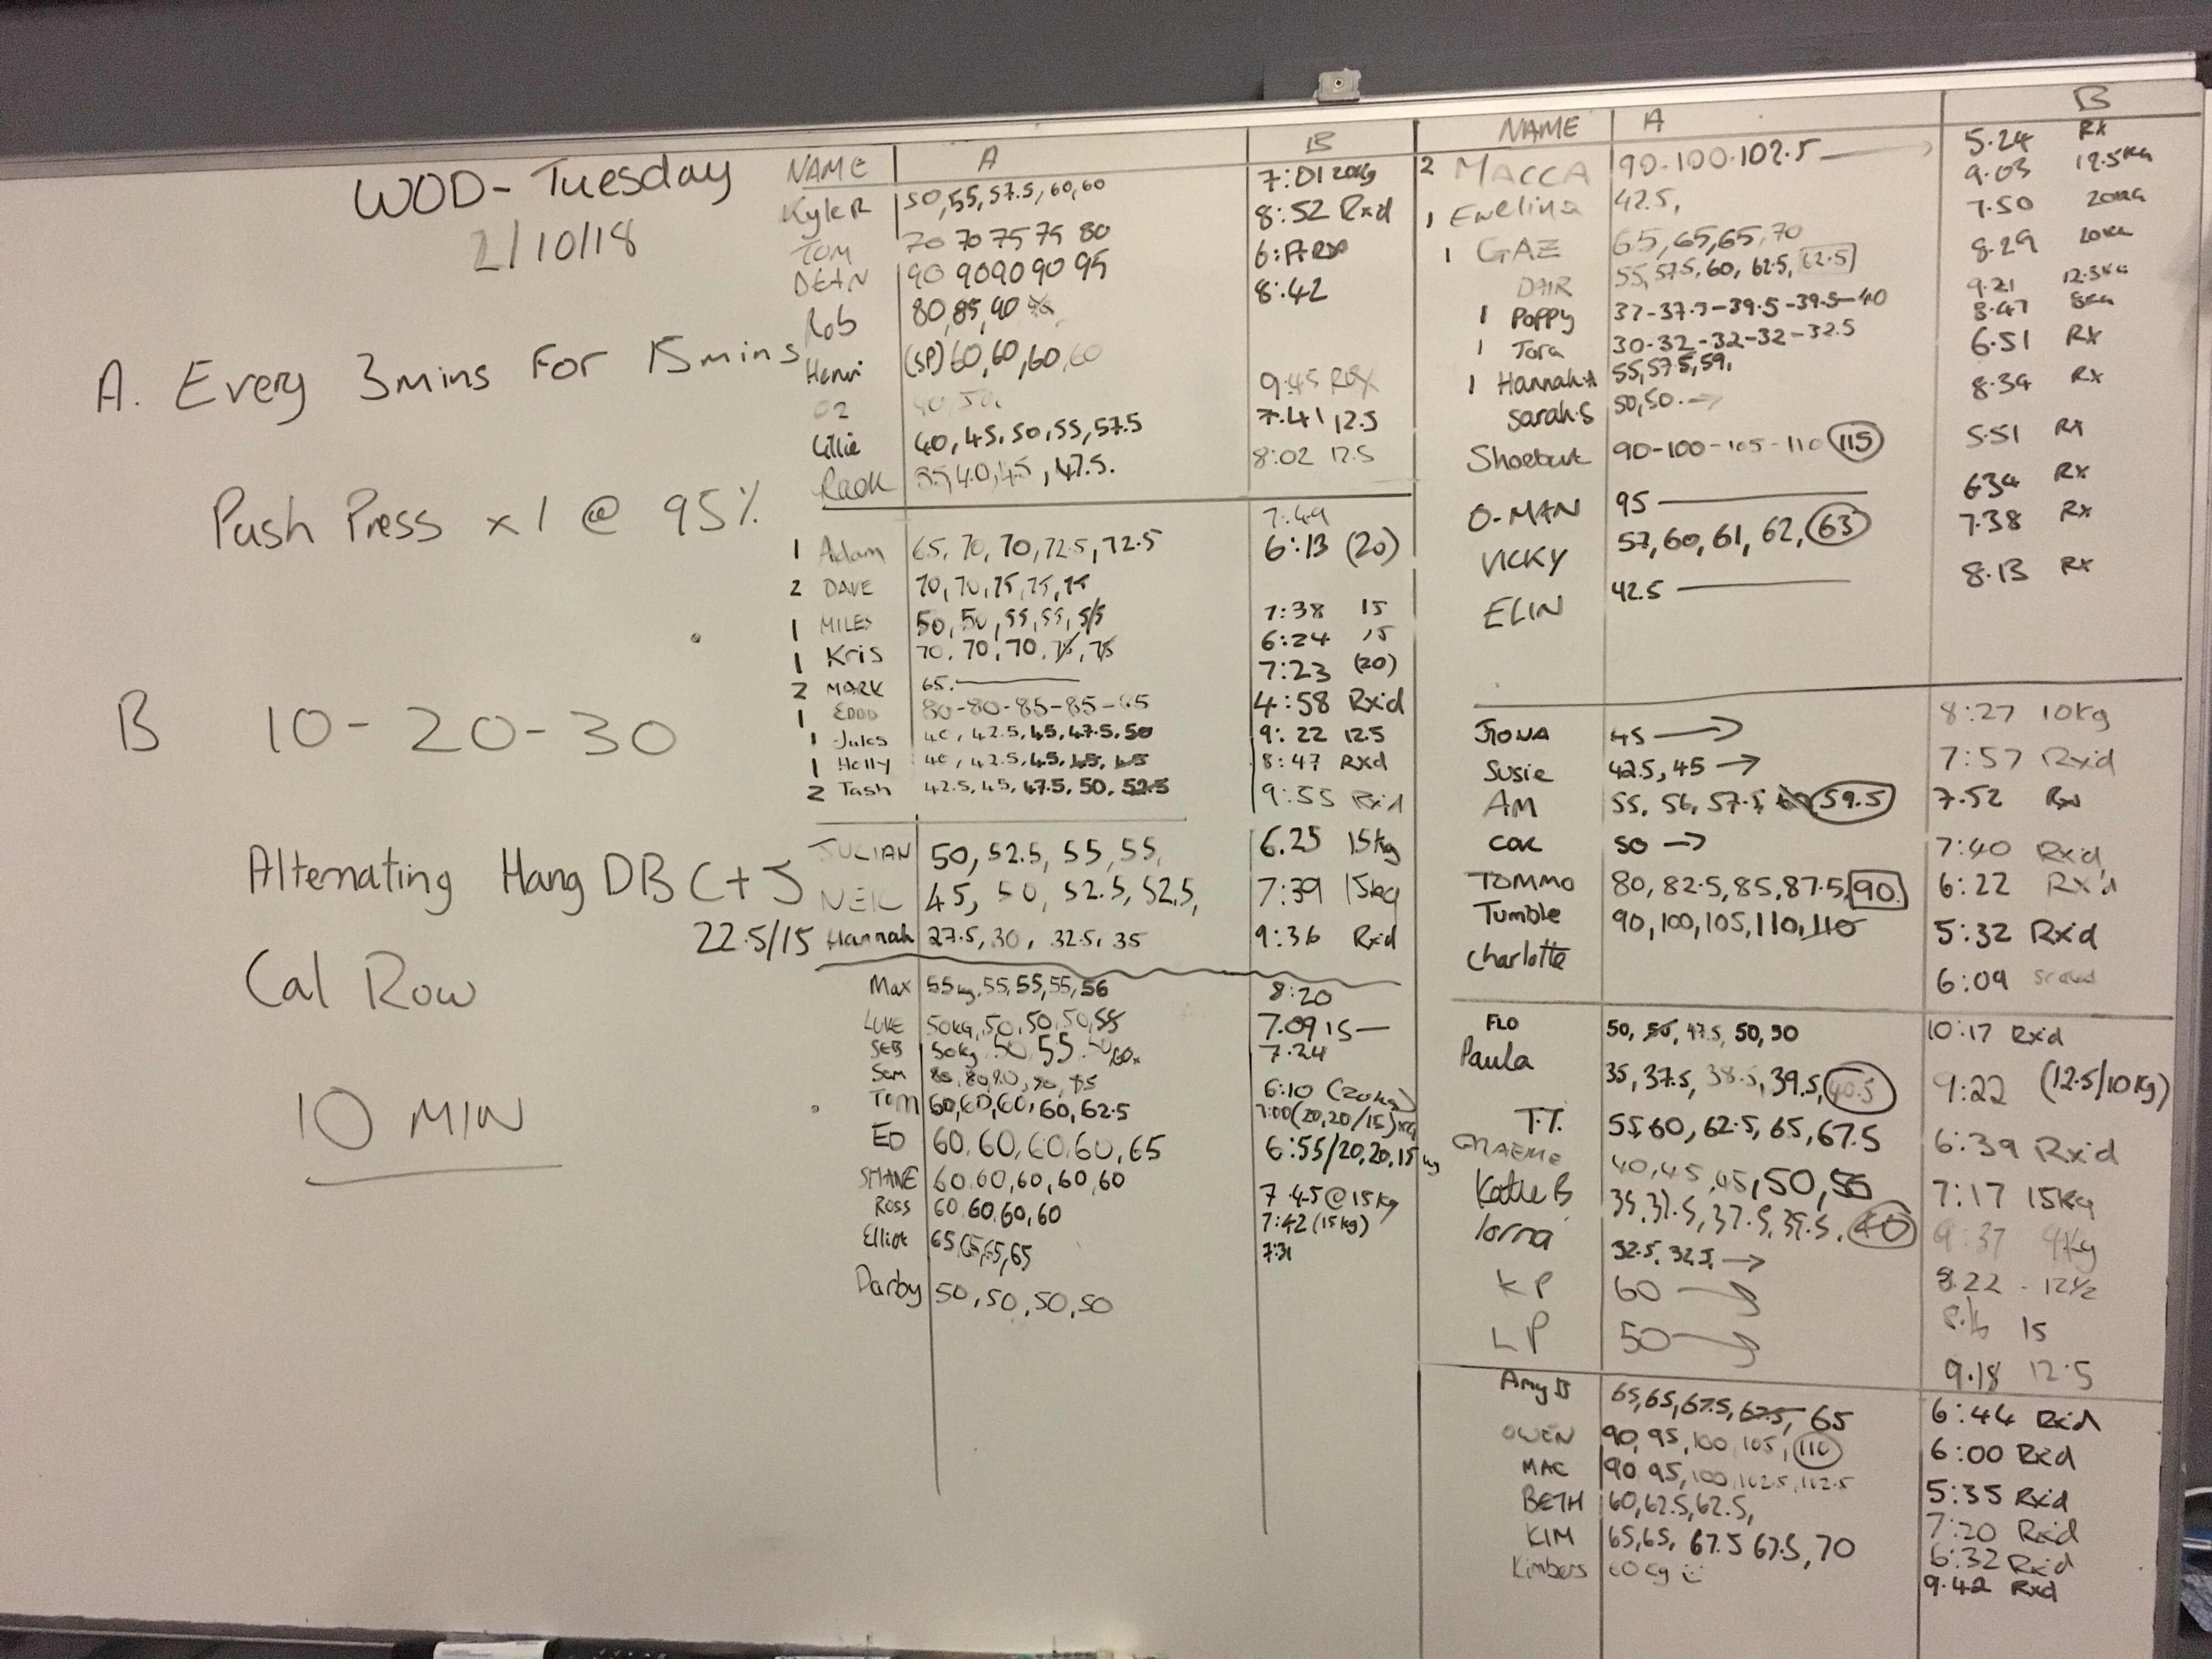 WOD - Tuesday
2/10/18
A. Every 3mins For 15mins
Push Press x 1 @ 95%
B 10 - 20 - 30
Alternating Hang DB C+J
22.5/15
Cal Row
10 MIN
NAME A B
Kyle R 50, 55, 57.5, 60, 60 7:01 20kg
TOM 70 70 75 75 80 8:52 Rxd
DEAN 90 90 90 90 95
Rob 80, 85, 90 8:42
(SP) 60, 60, 60, 60
9:45
Lillie 40, 45, 50, 55, 57.5 7.41 12.5
47.5. 8:02 12.5
7:49
1 Adam 65, 70, 70, 72.5, 72.5 6:13 (20)
2 DAVE 70, 70, 75, 75, 75
1 MILES 50, 50, 55, 55, 55 7:38 15
1 Kris 70, 70, 70, 75, 75 6:24 15
2 MARK 65. 7:23 (20)
1 80-80-85-85-85 4:58 Rx'd
1 Jules 40, 42.5, 45, 47.5, 50 9:22 12.5
1 Holly 40, 42.5, 45, 45, 45 8:47 Rxd
2 Tash 42.5, 45, 47.5, 50, 52.5 9:55 Rx'd
JULIAN 50, 52.5, 55, 55, 6.25 15kg
NEIL 45, 50, 52.5, 52.5, 7:39 15kg
Hannah 27.5, 30, 32.5, 35 9:36 Rxd
Max 55kg, 55, 55, 55, 56 8:20
LUKE 50kg, 50, 50, 50, 55 7.09 15
SEB 50kg, 50, 55 7.24
Sam 6:10 (20kg)
Tom 60, 60, 60, 60, 62.5 7:00 (20,20/15)kg
ED 60, 60, 60, 60, 65 6:55/20,20,15 kg
SHANE 60, 60, 60, 60, 60 7.45 @ 15kg
Ross 60, 60, 60, 60 7:42 (15kg)
Elliot 65, 65, 65, 65 7:31
Darby 50, 50, 50, 50
NAME A B
2 MACCA 90-100-102.5 5.24 Rx
1 Ewelina 42.5, 9.03 12.5kg
1 GAZ 65, 65, 65, 70 7.50 20kg
55, 57.5, 60, 62.5, 62.5 8.29 20kg
1 Poppy 37-37.5-39.5-39.5-40 9.21 12.5kg
1 Tora 30-32-32-32-32.5 8.47 8kg
1 Hannah.A 55, 57.5, 59, 6.51 Rx
Sarah.S 50, 50. 8.39 Rx
Shoebat 90-100-105-110 115 5.51 Rx
O-MAN 95 634 Rx
VICKY 57, 60, 61, 62, 63 7.38 Rx
ELIN 42.5 8.13 Rx
45 → 8:27 10kg
Susie 42.5, 45 → 7:57 Rx'd
AM 55, 56, 57.5, 59.5 7.52 Rx
50 → 7:40 Rx'd
TOMMO 80, 82.5, 85, 87.5, 90. 6:22 Rx'd
Tumble 90, 100, 105, 110, 110 5:32 Rxd
Charlotte 6:09
FLO 50, 50, 47.5, 50, 50 10:17 Rxd
Paula 35, 37.5, 38.5, 39.5, 40.5 9:22 (12.5/10kg)
T.T. 55, 60, 62.5, 65, 67.5 6:39 Rx'd
GRAEME 40, 45, 45, 50, 55 7:17 15kg
Katie B 35, 37.5, 37.5, 39.5, 40 9:37
Lorna 32.5, 32.5, → 8.22 - 12 1/2
KP 60 → 15
LP 50 → 9.18 12.5
Amy B 65, 65, 67.5, 67.5, 65 6:44 Rx'd
OWEN 90, 95, 100, 105, 110 6:00 Rxd
MAC 90, 95, 100, 102.5, 102.5 5:35 Rx'd
BETH 60, 62.5, 62.5, 7:20 Rx'd
KIM 65, 65, 67.5 67.5, 70 6:32 Rx'd
Kimbers 60kg 9.42 Rxd